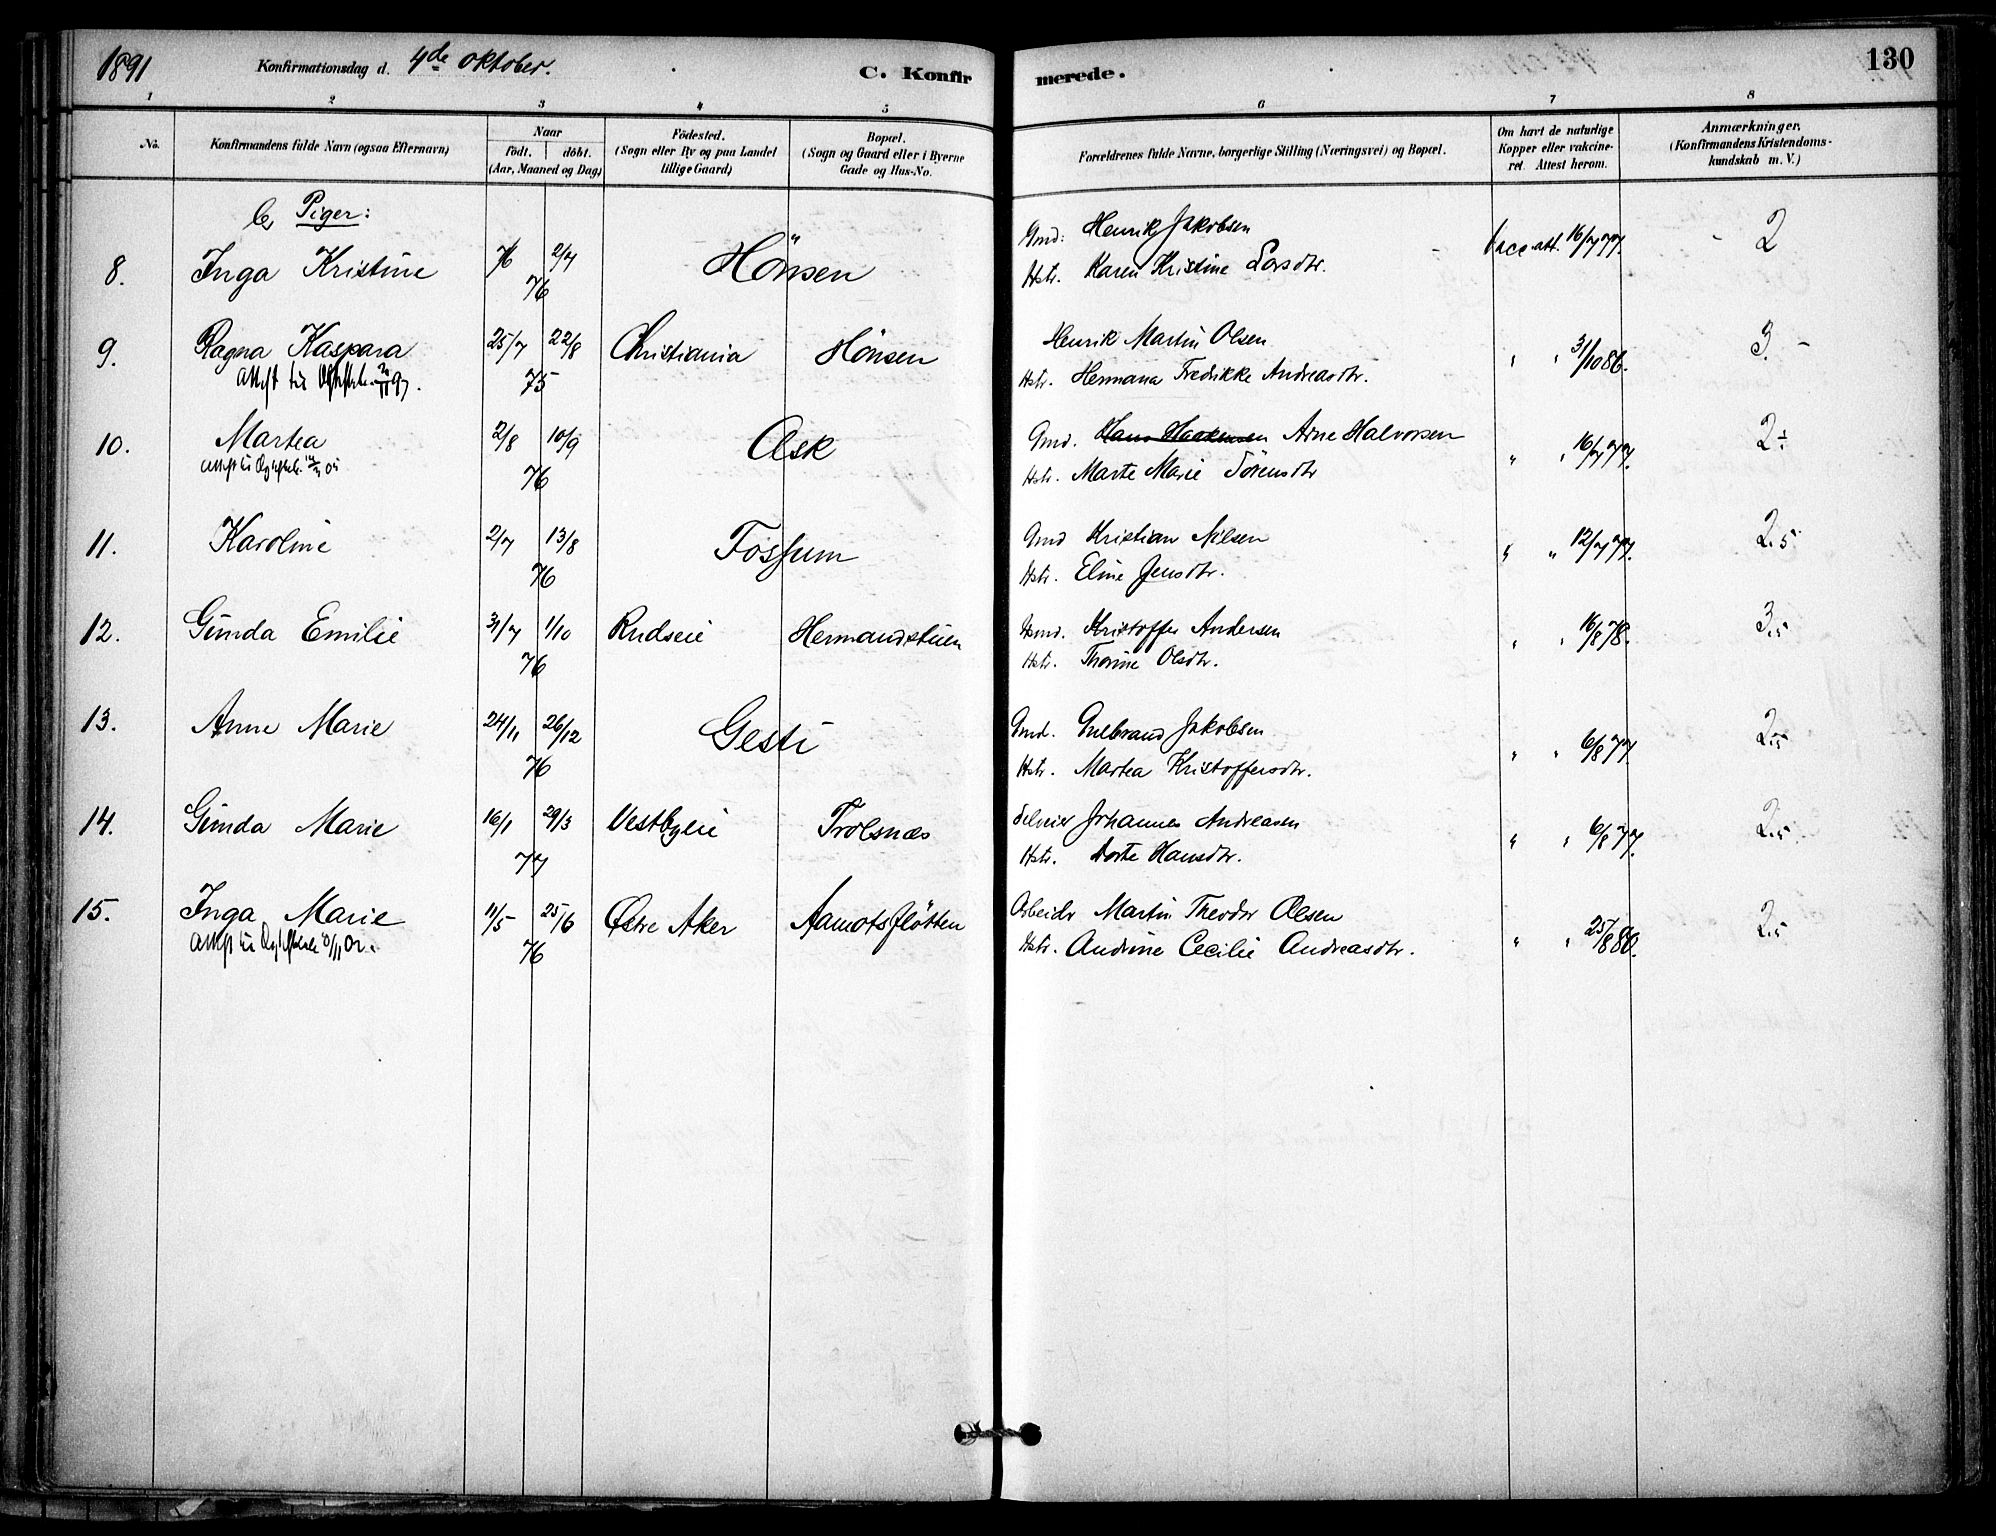 1891 Konfirmationsdag d. 4de Oktober. C. Konfir merede. 130
1 2 3 4 5 6 7 8
No. Konfirmandens fulde Navn (ogsaa Efternavn) Naar født. døbt. (Aar, Maaned og Dag) Fødested. (Sogn eller By og paa Landet tillige Gaard) Bopæl. (Sogn og Gaard eller i Byerne Gade og Hus-No. Forældrenes fulde Navne, borgerlige Stilling (Næringsvei) og Bopæl. Om havt de naturlige Kopper eller vakcineret. Attest herom. Anmærkninger. (Konfirmandens Kristendomskundskab m. V.)
b, Piger:
8. Inga Kristine 2/7 76 Hönsen Gmd: Henrik Jakobsen Vacc att. 16/7 77. 2
Hstr. Karen Kristine Larsdtr.
9. Ragna Kaspara 25/7 22/8 Christiania Hönsen Henrik Martin Olsen " " 31/10 86. 3.
Attest til 75 Hstr. Hermana Fredrikke Andreasdtr.
10. Martea 2/8 10/9 Ask Gmd. Hans Haakensen Arne Halvorsen " " 16/7 77. 2÷
Attest til 76 Hstr. Marte Marie Sörensdtr
11. Karoline 2/7 13/8 Fossum Gmd Kristian Nilsen " " 12/7 77. 2.5
76 Hstr. Eline Jensdtr.
12. Gunda Emilie 31/7 1/10 Rudseie Hermandstuen Hmd. Kristoffer Andersen " " 16/8 78. 3.5
76 Hstr. Thorine Olsdtr.
13. Anne Marie 24/11 26/12 Gesti Gmd. Gulbrand Jakobsen " " 6/8 77. 2.5
76 Hstr. Martea Kristoffersdtr.
14. Gunda Marie 16/1 29/3 Vestbyeie Trolsnæs Selveier Johannes Andreasen " " 6/8 77. 2.5
77 Hstr. Dorte Hansdtr.
15. Inga Marie 11/5 25/6 Østre Aker Aamotsflötten Arbeidr Martin Theodor Olsen " " 25/8 86. 2.5
Attest til 76 Hstr. Andrine Cecilie Andreasdtr.